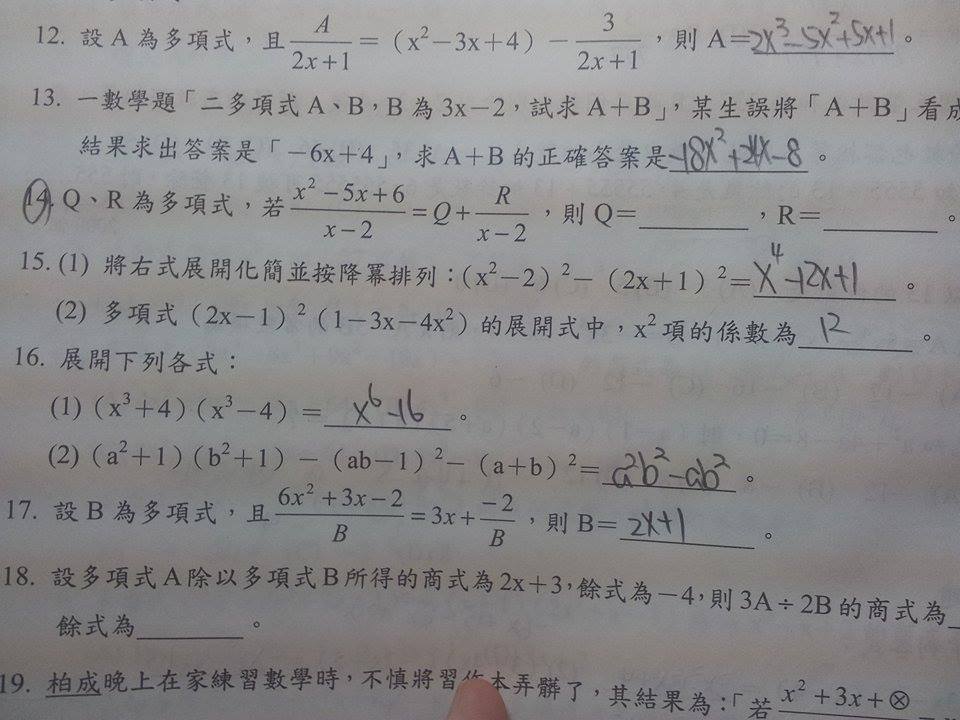 12. 設 A 為多項式，且 A/(2x+1) =（x²−3x+4）− 3/(2x+1)，則 A=2x³-5x²+5x+1。
13. 一數學題「二多項式 A、B，B 為 3x−2，試求 A+B」，某生誤將「A+B」看成
結果求出答案是「−6x+4」，求 A+B 的正確答案是-18x²+24x-8。
14. Q、R 為多項式，若 (x²−5x+6)/(x−2) = Q + R/(x−2)，則 Q=________，R=________。
15. (1) 將右式展開化簡並按降冪排列：（x²−2）²−（2x+1）²=x⁴-12x+1。
(2) 多項式（2x−1）²（1−3x−4x²）的展開式中，x² 項的係數為 12。
16. 展開下列各式：
(1)（x³+4）（x³−4）= x⁶-16。
(2)（a²+1）（b²+1）−（ab−1）²−（a+b）²=a²b²-ab²。
17. 設 B 為多項式，且 (6x²+3x−2)/B = 3x + −2/B，則 B= 2x+1。
18. 設多項式 A 除以多項式 B 所得的商式為 2x+3，餘式為 −4，則 3A÷2B 的商式為
餘式為________。
19. 柏成晚上在家練習數學時，不慎將習作本弄髒了，其結果為：「若 x²+3x+⊗